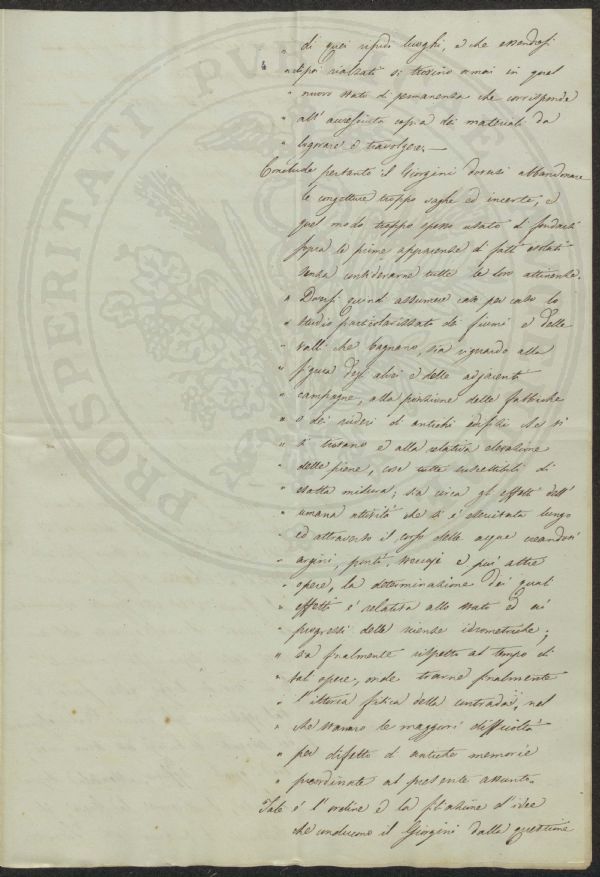 " di quei ripidi luoghi, e che essendosi
" dipoi rialzati si trovino omai in quel
" nuovo stato di permanenza che corrisponde
" all' accresciuta copia dei materiali da
" logorare e travolgere. —
Conclude pertanto il Giorgini doversi abbandonare
le congetture troppo vaghe ed incerte, e
quel modo troppo spesso usato di fondarsi
sopra le prime apparenze di fatti isolati
senza considerarne tutte le loro attinenze.
" Doversi quindi assumere caso per caso lo
" studio particolarizzato de fiumi e delle
" valli che bagnano, sia riguardo alla
" figura degli alvei e delle adjacenti
" campagne, alla posizione delle fabbriche
" o dei ruderi di antichi edifizi che vi
" si trovano e alla relativa elevazione
" delle piene, cose tutte suscettibili di
" esatta misura; sia circa gli effetti dell'
" umana attività che si è esercitata lungo
" ed attraverso il corso delle acque creandovi
" argini, ponti, pescaje e più altre
" opere, la determinazione dei quali
" effetti è relativa allo stato ed ai
" progressi della scienza idrometrica;
" sia finalmente rispetto al tempo di
" tali opere, onde trarne finalmente
" l'istoria fisica della contrada, nel
" che stanno le maggiori difficoltà
" per difetto di antiche memorie
" preordinate al presente assunto.
Tale è l'ordine e la filiazione d'idee
che conducono il Giorgini dalla questione
PROSPERITATI PUBLICAE